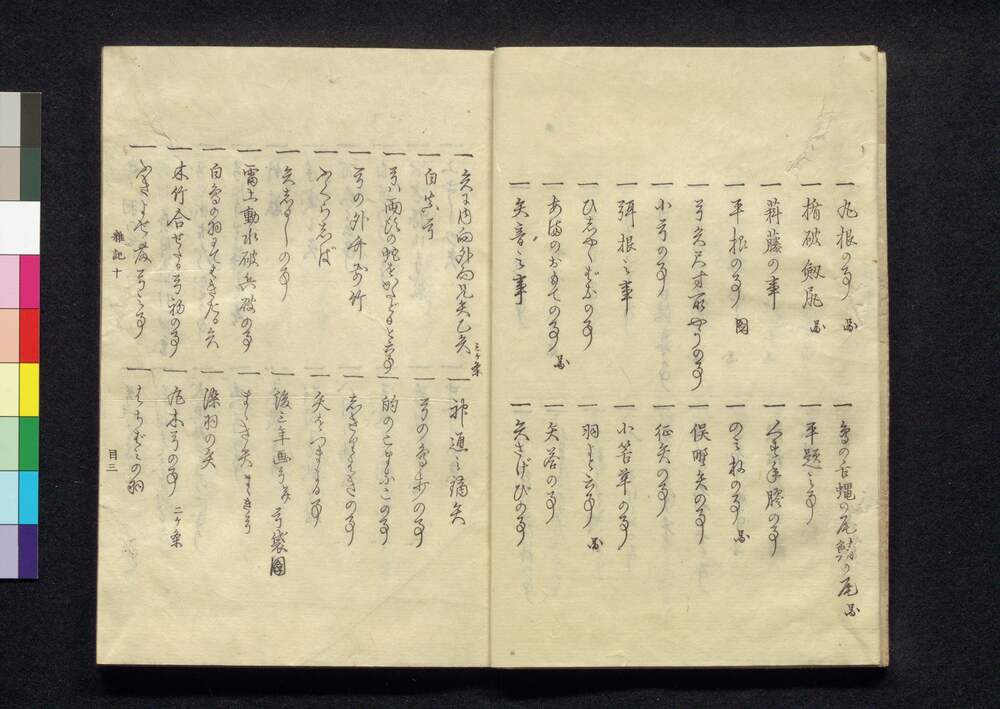 一 丸根の事 図
一 楯破 劔尻 図
一 蒋藤の事
一 平根の事 図
一 弓矢尺寸取やうの事
一 小弓の事
一 弭根之事
一 ひしやくぼふの事
一 あまのおもての事 図
一 矢音之事
一 鳥の舌 蠅の尾 鯖の尾 図
一 平題之事
一 くすね 膠の事
一 のミねの事 図
一 俣野矢の事
一 征矢の事
一 小笠草の事
一 羽と云事 図
一 矢答の事
一 矢さけびの事
一 矢に内向外向兄矢乙矢 三ヶ条
一 白真弓
一 弓ハ両頭の蛇をかたどると云事
一 弓の外竹前竹
一 ふくらしば
一 矢しるしの事
一 雷上動水破兵破の事
一 白鳥の羽にてはぎたる矢
一 木竹合せたる弓初の事
一 神通之鏑矢
一 弓の鳥打の事
一 的のこまなこの事
一 矢をつまよる事
一 後三年画弓等 弓袋図
一 まゝき矢 まゝき弓
一 染羽の矢
一 丸木弓の事 二ヶ条
一 はちばミの羽
雑記十
目三